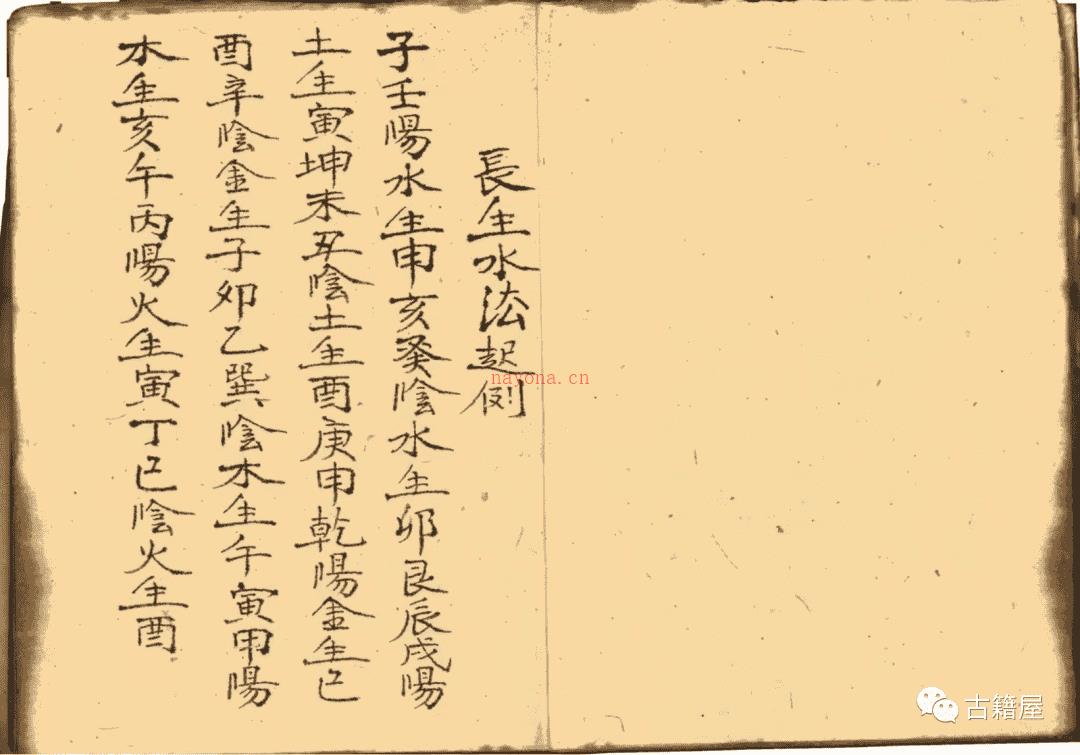 長生水法起例
子壬陽水生申亥癸陰水生卯艮辰戌陽
土生寅坤未丑陰土生酉庚申乾陽金生巳
酉辛陰金生子卯乙巽陰木生午寅甲陽
木生亥午丙陽火生寅丁巳陰火生酉
nayona.cn
古籍屋